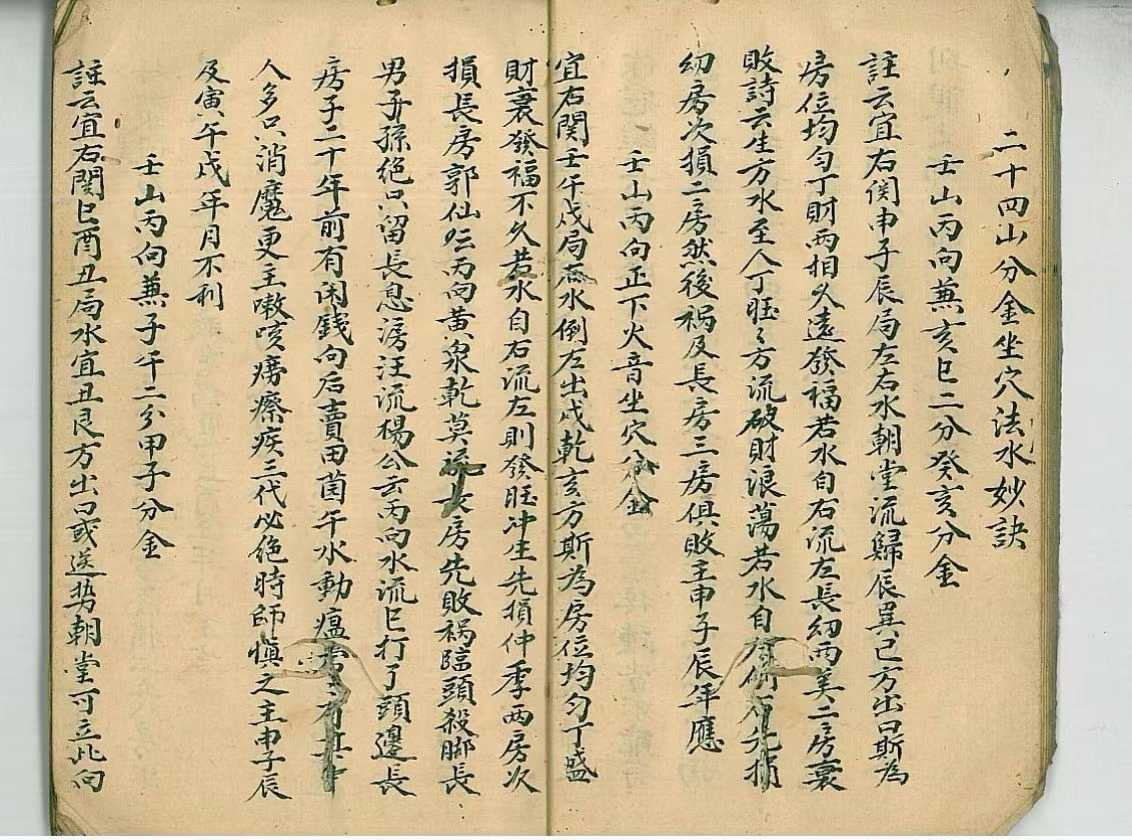 二十四山分金坐穴法水妙訣
壬山丙向兼亥巳二分癸亥分金
註云宜右関申子辰局左右水朝堂流歸辰巽巳方出口斯為
房位均匀丁財両相久遠發福若水自右流左長幼両美二房衰
敗詩云生方水至人丁旺〻方流破財浪蕩若水自左先損
幼房次損二房然後祸及長房三房俱敗主申子辰年應
壬山丙向正下火音坐穴分金
宜右関壬午戌局水倒左出戌乾亥方斯為房位均匀丁盛
財衰發福不久若水自右流左則發旺冲生先損仲季両房次
損長房郭仙云丙向黄泉乾莫流長房先敗祸臨頭殺脚長
男子孫絶只留長息涝汪流楊公云丙向水流巳打了頭邊長
房子二十年前有闲錢向后賣田茵午水動瘟
人多只消魔更主嗽咳痨瘵疾三代必绝時師慎之主申子辰
及寅午戌年月不利
壬山丙向兼子午二分甲子分金
註云宜右関巳酉丑局水宜丑艮方出口或迸势朝堂可立此向